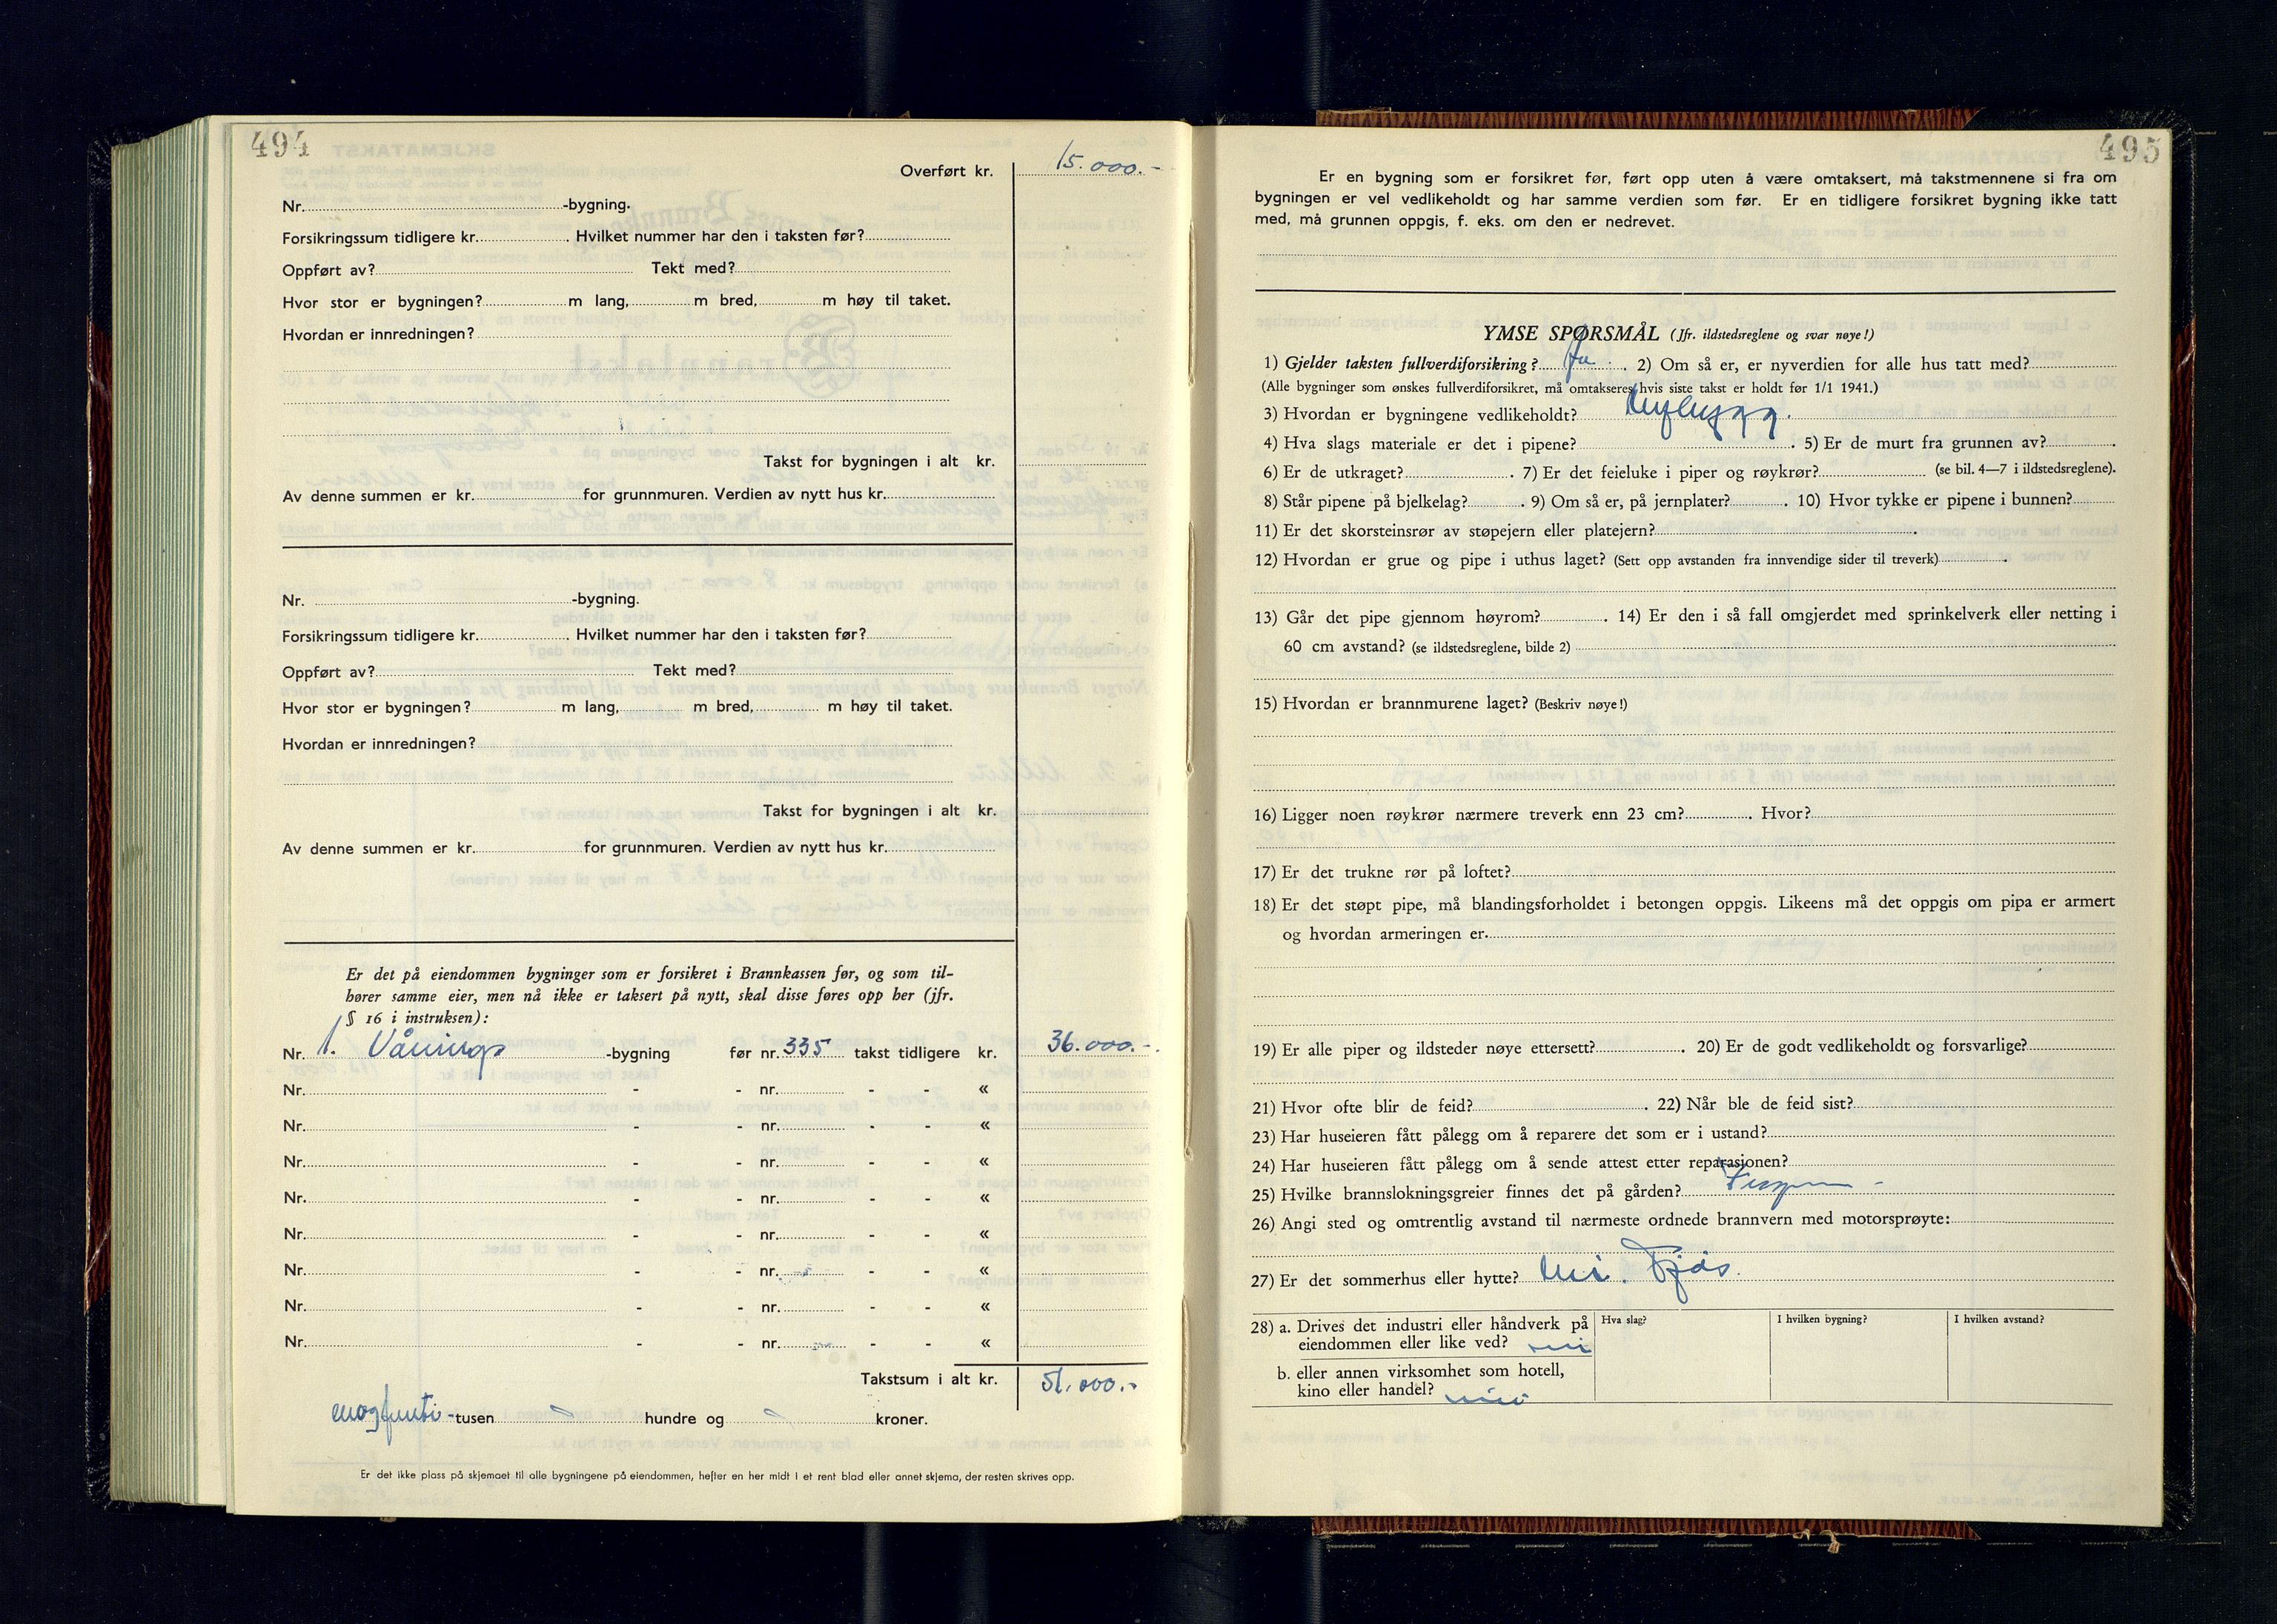 494
Overført kr. 15.000.-
Nr. -bygning.
Forsikringssum tidligere kr. . Hvilket nummer har den i taksten før?
Oppført av? Tekt med?
Hvor stor er bygningen? m lang, m bred, m høy til taket.
Hvordan er innredningen?
Takst for bygningen i alt kr.
Av denne summen er kr. for grunnmuren. Verdien av nytt hus kr.
Nr. -bygning.
Forsikringssum tidligere kr. . Hvilket nummer har den i taksten før?
Oppført av? Tekt med?
Hvor stor er bygningen? m lang, m bred, m høy til taket.
Hvordan er innredningen?
Takst for bygningen i alt kr.
Av denne summen er kr. for grunnmuren. Verdien av nytt hus kr.
Er det på eiendommen bygninger som er forsikret i Brannkassen før, og som til-
hører samme eier, men nå ikke er taksert på nytt, skal disse føres opp her (jfr.
§ 16 i instruksen):
Nr. 1. Vånings -bygning før nr. 335 takst tidligere kr. 36.000.-
Nr. - - nr. - - «
Nr. - - nr. - - «
Nr. - - nr. - - «
Nr. - - nr. - - «
Nr. - - nr. - - «
Nr. - - nr. - - «
Nr. - - nr. - - «
Nr. - - nr. - - «
Takstsum i alt kr. 51.000.-
enogfemti -tusen - hundre og - kroner.
Er det ikke plass på skjemaet til alle bygningene på eiendommen, hefter en her midt i et rent blad eller annet skjema, der resten skrives opp.
495
Er en bygning som er forsikret før, ført opp uten å være omtaksert, må takstmennene si fra om
bygningen er vel vedlikeholdt og har samme verdien som før. Er en tidligere forsikret bygning ikke tatt
med, må grunnen oppgis, f. eks. om den er nedrevet.
YMSE SPØRSMÅL (Jfr. ildstedsreglene og svar nøye!)
1) Gjelder taksten fullverdiforsikring? Ja . 2) Om så er, er nyverdien for alle hus tatt med?
(Alle bygninger som ønskes fullverdiforsikret, må omtakseres hvis siste takst er holdt før 1/1 1941.)
3) Hvordan er bygningene vedlikeholdt? Nybygg.
4) Hva slags materiale er det i pipene? . 5) Er de murt fra grunnen av? .
6) Er de utkraget? . 7) Er det feieluke i piper og røykrør? (se bil. 4—7 i ildstedsreglene).
8) Står pipene på bjelkelag? . 9) Om så er, på jernplater? . 10) Hvor tykke er pipene i bunnen?
11) Er det skorsteinsrør av støpejern eller platejern? .
12) Hvordan er grue og pipe i uthus laget? (Sett opp avstanden fra innvendige sider til treverk) .
13) Går det pipe gjennom høyrom? . 14) Er den i så fall omgjerdet med sprinkelverk eller netting i
60 cm avstand? (se ildstedsreglene, bilde 2)
15) Hvordan er brannmurene laget? (Beskriv nøye!)
16) Ligger noen røykrør nærmere treverk enn 23 cm? . Hvor?
17) Er det trukne rør på loftet?
18) Er det støpt pipe, må blandingsforholdet i betongen oppgis. Likeens må det oppgis om pipa er armert
og hvordan armeringen er.
19) Er alle piper og ildsteder nøye ettersett? . 20) Er de godt vedlikeholdt og forsvarlige?
21) Hvor ofte blir de feid? . 22) Når ble de feid sist?
23) Har huseieren fått pålegg om å reparere det som er i ustand?
24) Har huseieren fått pålegg om å sende attest etter reparasjonen?
25) Hvilke brannslokningsgreier finnes det på gården?
26) Angi sted og omtrentlig avstand til nærmeste ordnede brannvern med motorsprøyte:
27) Er det sommerhus eller hytte? Nei. Fjøs.
28) a. Drives det industri eller håndverk på
eiendommen eller like ved? nei
Hva slag?
I hvilken bygning?
I hvilken avstand?
b. eller annen virksomhet som hotell,
kino eller handel? nei